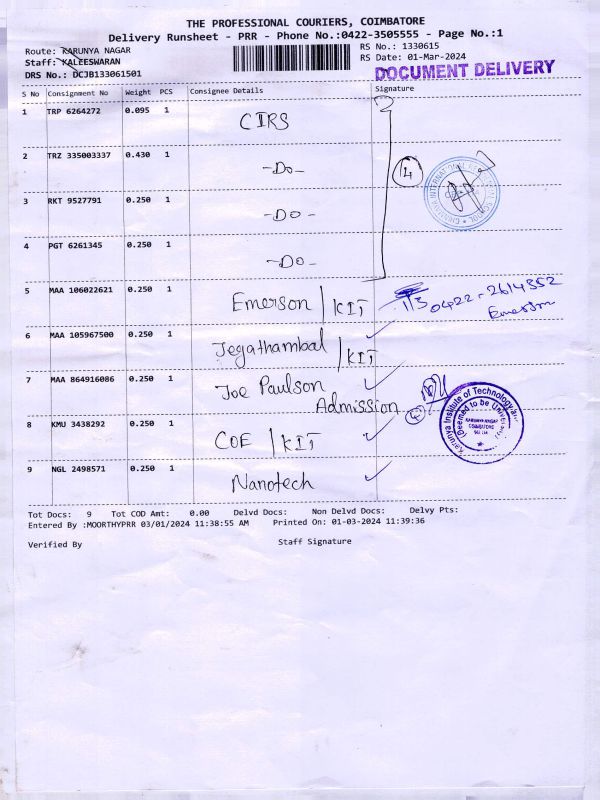 THE PROFESSIONAL COURIERS, COIMBATORE
Delivery Runsheet - PRR - Phone No.:0422-3505555 - Page No.:1
Route: KARUNYA NAGAR
RS No.: 1330615
Staff: KALEESWARAN
RS Date: 01-Mar-2024
DRS No.: DCJB133061501
DOCUMENT DELIVERY
S No Consignment No Weight PCS Consignee Details Signature
1 TRP 6264272 0.095 1 CIRS
2 TRZ 335003337 0.430 1 -Do-
3 RKT 9527791 0.250 1 -DO-
4 PGT 6261345 0.250 1 -DO-
4
5 MAA 106022621 0.250 1 Emerson / KIT
0422-2614352
Emerson
6 MAA 105967500 0.250 1 Jegathambal / KIT
7 MAA 864916086 0.250 1 Joe Paulson
Admission
8 KMU 3438292 0.250 1 COE / KIT
Karunya Institute of Technology
(Deemed to be
KARUNYA NAGAR
COIMBATORE
9 NGL 2498571 0.250 1 Nanotech
Tot Docs: 9 Tot COD Amt: 0.00 Delvd Docs: Non Delvd Docs: Delvy Pts:
Entered By :MOORTHYPRR 03/01/2024 11:38:55 AM Printed On: 01-03-2024 11:39:36
Verified By Staff Signature